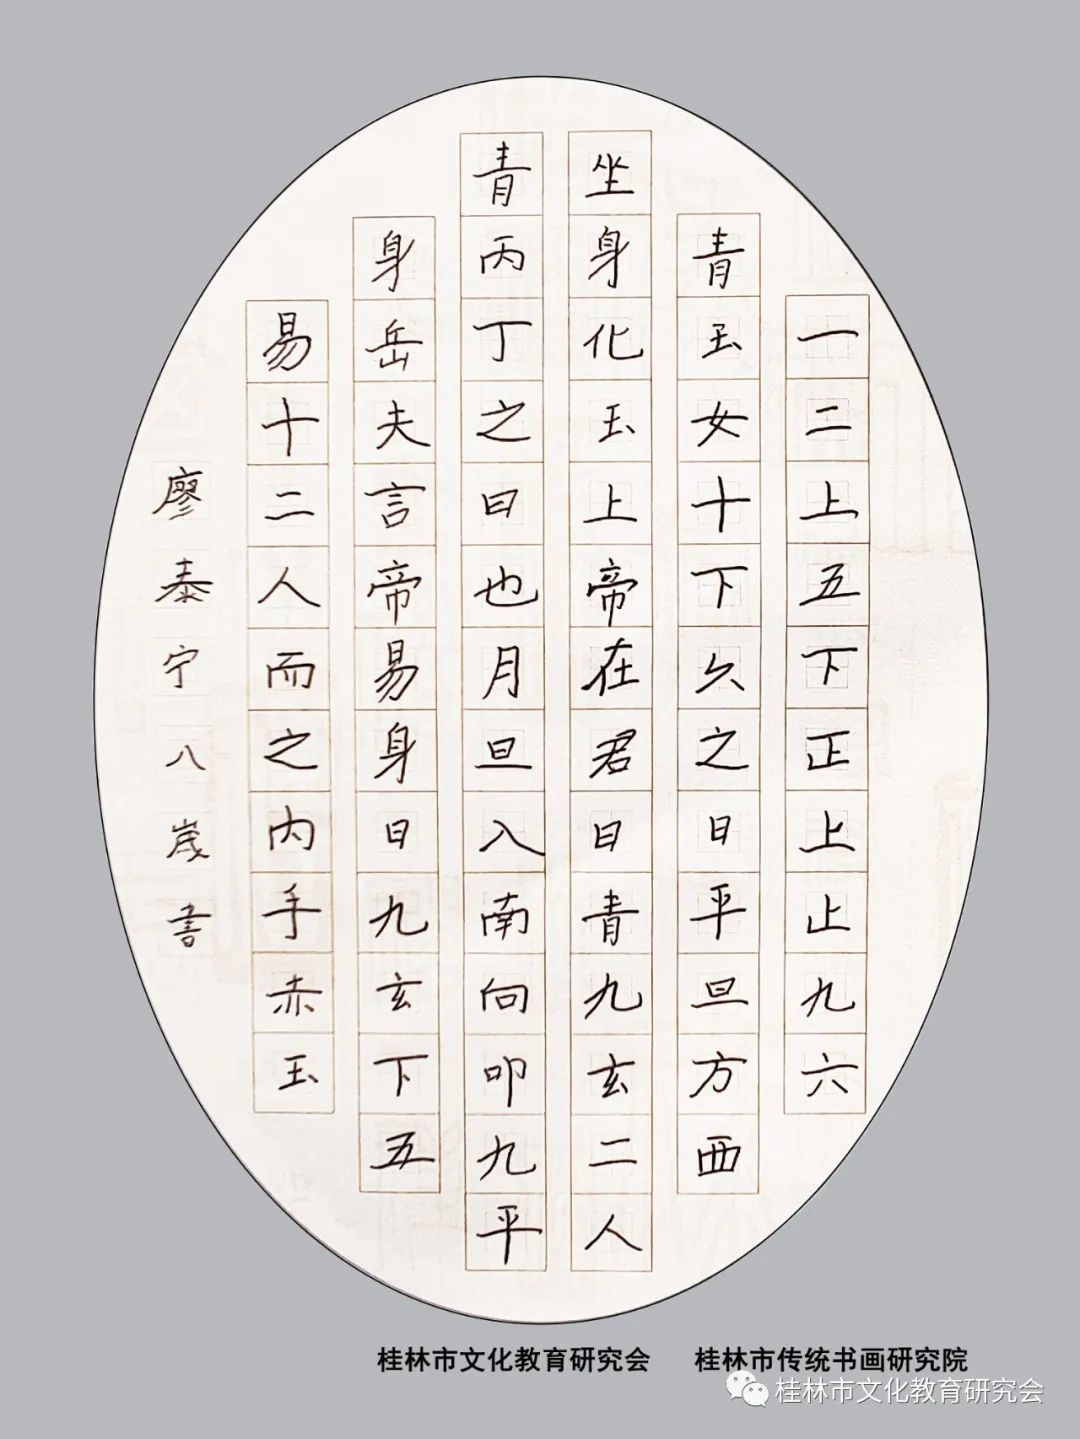 一二上五下正上止九六
青玉女十下久之日平旦方西
坐身化玉上帝在君日青九玄二人
青丙丁之日也月旦入南向叩九平
身岳夫言帝易身日九玄下五
易十二人而之内手赤玉
廖泰宁八岁书
桂林市文化教育研究会 桂林市传统书画研究院
桂林市文化教育研究会